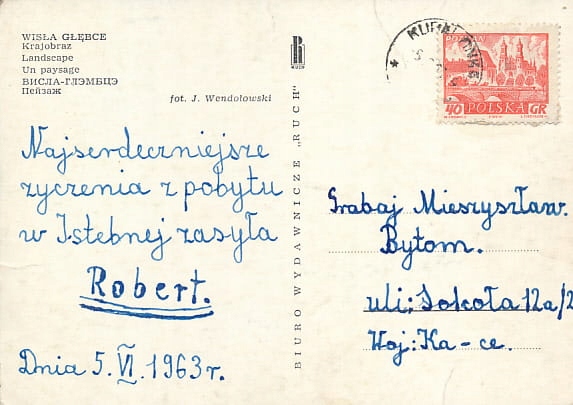 WISŁA GŁĘBCE
Krajobraz
Landscape
Un paysage
ВИСЛА-ГЛЭМБЦЭ
Пейзаж
fot. J. Wendołowski
Najserdeczniejsze
życzenia z pobytu
w Istebnej zasyła
Robert.
Dnia 5.VI.1963r.
BIURO WYDAWNICZE „RUCH"
R
RUCH
POZNAŃ
40 POLSKA GR
Grabaj Mieszysław.
Bytom.
uli: Sokoła 12a/2
Woj: Ka-ce.